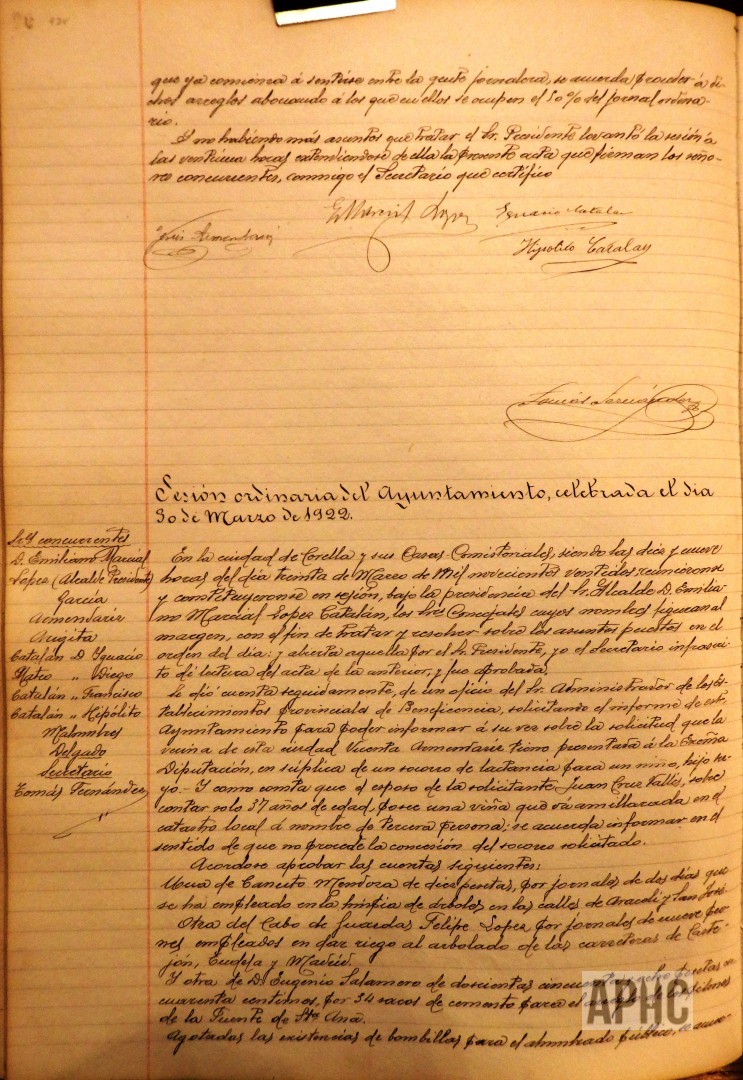 que ya comienza á sentirse entre la gente jornalera, se acuerda proceder á di-
chos arreglos abonando á los que en ellos se ocupen el 50% del jornal ordina-
rio.
Y no habiendo más asuntos que tratar el Sr. Presidente levantó la sesión á
las veintiuna horas extendiendose de ella la presente acta que firman los seño-
res concurrentes, conmigo el Secretario que certifico
E. Marcial Lopez
Ignacio Catalan
Hipolito Catalan
Tomás Fernández
Sesión ordinaria del Ayuntamiento, celebrada el dia
30 de Marzo de 1922.
Sres concurrentes
D. Emiliano Marcial
Lopez (Alcalde Presidente)
Garcia
Armendariz
Augita
Catalán D. Ignacio
Mateo " Diego
Catalán " Francisco
Catalán " Hipólito
Malumbres
Delgado
Secretario
Tomás Fernández
En la ciudad de Corella y sus Casas Consistoriales, siendo las diez y nueve
horas del día treinta de Marzo de mil novecientos veintidos reunieronse
y constituyeronse en sesión, bajo la presidencia del Sr. Alcalde D. Emilia-
no Marcial Lopez Catalán, los Sres Concejales cuyos nombres figuran al
margen, con el fin de tratar y resolver sobre los asuntos puestos en el
orden del dia: y abierta aquella por el Sr. Presidente, yo el Secretario infrascri-
to di lectura del acta de la anterior, y fue aprobada.
Se dió cuenta seguidamente, de un oficio del Sr. Administrador de los Es-
tablecimientos provinciales de Beneficencia, solicitando el informe de este
Ayuntamiento para poder informar á su vez sobre la solicitud que la
vecina de esta ciudad Vicenta Armendariz tiene presentada á la Excma
Diputación, en súplica de un socorro de lactancia para un niño, hijo su-
yo.- Y como consta que el esposo de la solicitante Juan Cruz Vallés, sobre
contar solo 37 años de edad, posee una viña que va amillarada en el
catastro local á nombre de tercera persona; se acuerda informar en el
sentido de que no procede la concesión del socorro solicitado.
Acordose aprobar las cuentas siguientes:
Una de Canuto Mendoza de diez pesetas, por jornales de dos dias que
se ha empleado en la limpia de árboles en las calles de Araceli y San José
Otra del Cabo de Guardas Felipe Lopez por jornales de nueve peo-
nes empleados en dar riego al arbolado de las carreteras de Caste-
jón, Tudela y Madrid.
Y otra de D. Eugenio Salamero de doscientas cincuenta y ocho pesetas
cuarenta centimos, por 34 sacos de cemento para el de los pilones
de la Fuente de Sta Ana.
Agotadas las existencias de bombillas para el alumbrado público, se acuer-
APHC